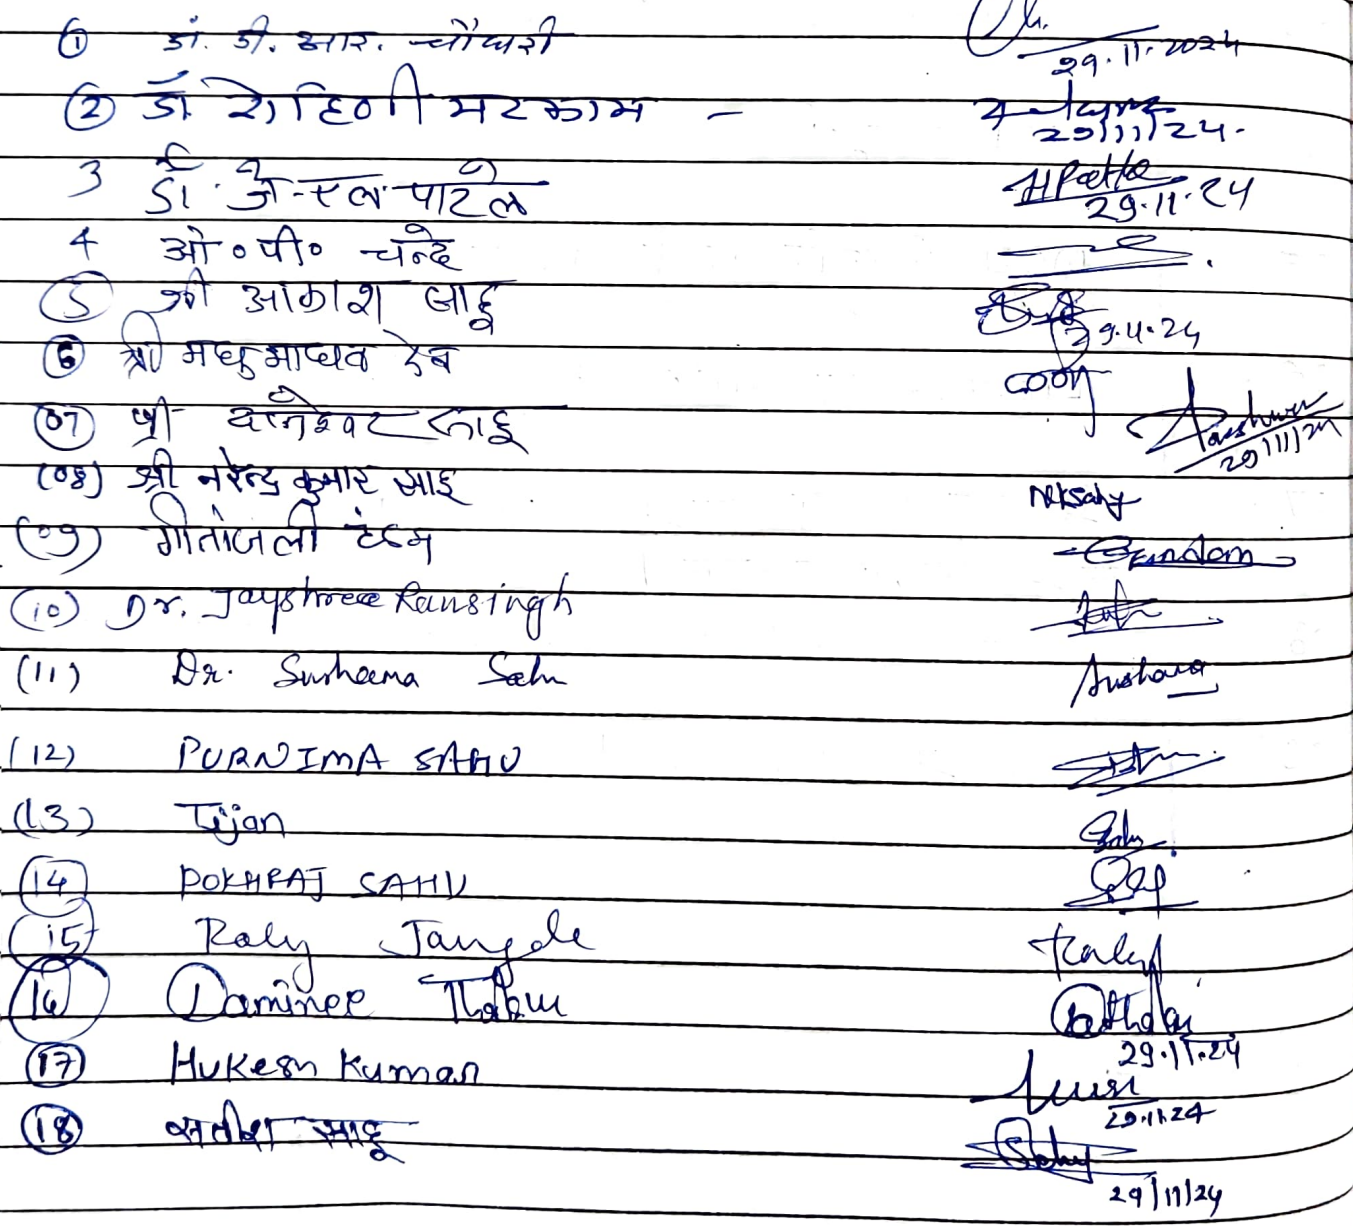 ① डॉ. डी. आर. चौधरी 29.11.2024
② डॉ. रोहिणी मरकाम - 29/11/24.
3 डॉ. जे-एल. पाटले HPatle 29.11.24
4 ओ॰ पी॰ चन्दे
⑤ श्री आकाश साहू 29.11.24
⑥ श्री मधुमाधव देव
07 श्री साहू 29/11/24
(08) श्री नरेन्द्र कुमार साहू NKSahy
(09) गीतांजली टंडम
(10) Dr. Jayshree Ransingh
(11) Dr. Sushama Sahu Sushama
(12) PURNIMA SAHU
(13) Tijan
14 POKHRAJ SAHU
15 Raly Jangde Raly
16 Daminee Thakur
29.11.24
⑰ Hukesh Kumar
29.11.24
⑱ सतीश साहू
29/11/24